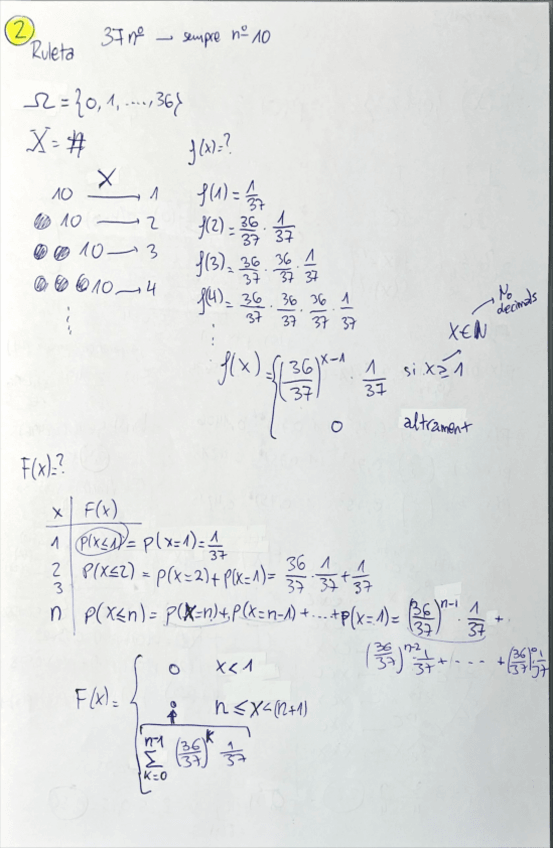 2
Ruleta 37 nº → sempre nº 10
Ω = {0, 1, ..., 36}
X = # f(x)=?
X
10 → 1 f(1) = 1/37
10 → 2 f(2) = 36/37 · 1/37
10 → 3 f(3) = 36/37 · 36/37 · 1/37
10 → 4 f(4) = 36/37 · 36/37 · 36/37 · 1/37
⋮ ⋮
No decimals
X∈N
f(x) = { (36/37)^(x-1) · 1/37 si x ≥ 1
0 altrament
F(x)=?
x | F(x)
1 | P(X≤1) = P(X=1) = 1/37
2 | P(X≤2) = P(X=2) + P(X=1) = 36/37 · 1/37 + 1/37
3
n | P(X≤n) = P(X=n) + P(X=n-1) + ... + P(X=1) = (36/37)^(n-1) · 1/37 +
(36/37)^(n-2) · 1/37 + ... + (36/37)^0 · 1/37
F(x) = { 0 x < 1
n ≤ x < (n+1)
∑_{k=0}^{n-1} (36/37)^k 1/37